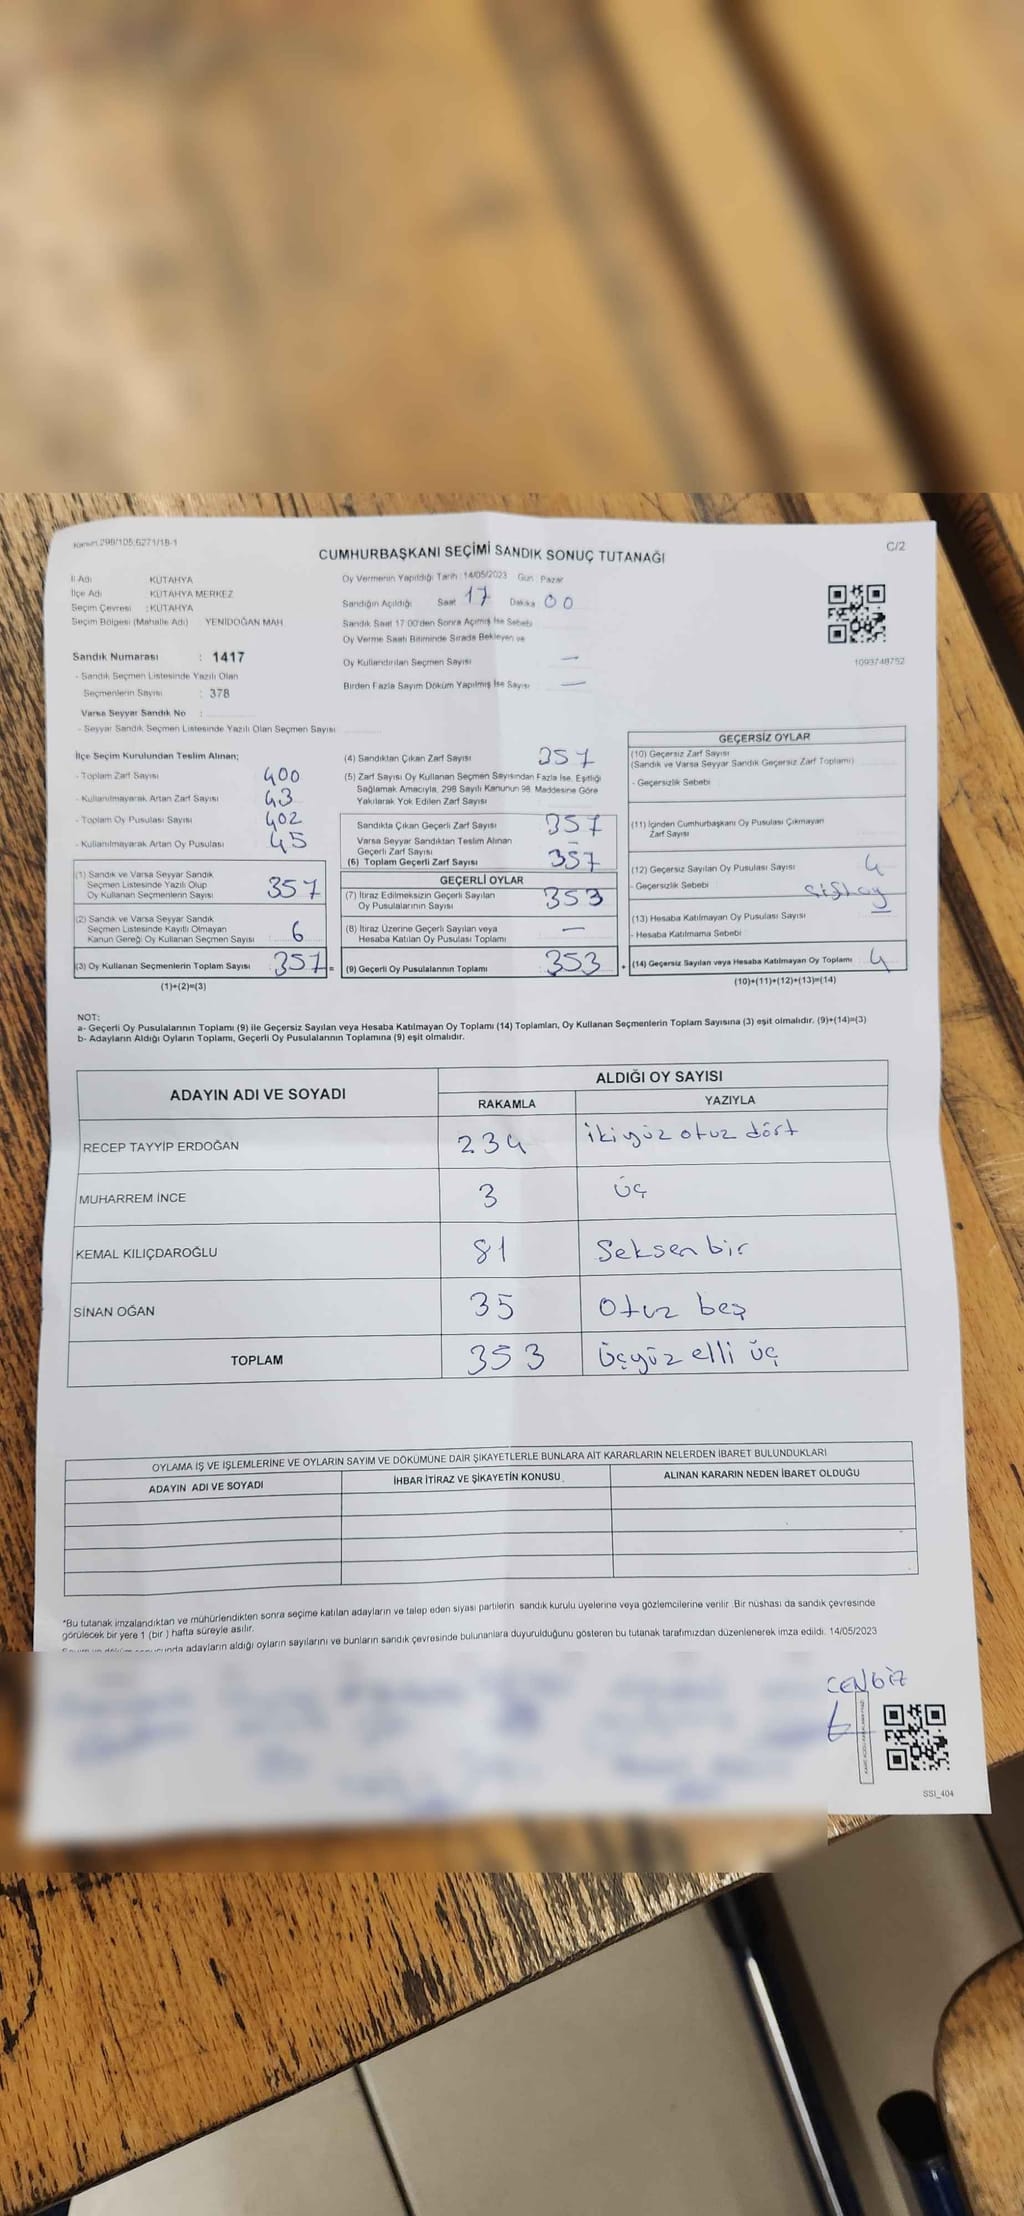 C/2
CUMHURBAŞKANI SEÇİMİ SANDIK SONUÇ TUTANAĞI
İl Adı KÜTAHYA
İlçe Adı KÜTAHYA MERKEZ
Seçim Çevresi : KÜTAHYA
Seçim Bölgesi (Mahalle Adı) YENİDOĞAN MAH
Sandık Numarası : 1417
- Sandık Seçmen Listesinde Yazılı Olan
Seçmenlerin Sayısı : 378
Varsa Seyyar Sandık No :
- Seyyar Sandık Seçmen Listesinde Yazılı Olan Seçmen Sayısı
Oy Vermenin Yapıldığı Tarih : 14/05/2023 Gün : Pazar
Sandığın Açıldığı Saat 17 Dakika 00
Sandık Saat 17:00'den Sonra Açılmış İse Sebebi
Oy Verme Saati Bitiminde Sırada Bekleyen ve
Oy Kullandırılan Seçmen Sayısı —
Birden Fazla Sayım Döküm Yapılmış İse Sayısı —
1093748752
İlçe Seçim Kurulundan Teslim Alınan;
- Toplam Zarf Sayısı 400
- Kullanılmayarak Artan Zarf Sayısı 43
- Toplam Oy Pusulası Sayısı 402
- Kullanılmayarak Artan Oy Pusulası 45
(1) Sandık ve Varsa Seyyar Sandık
Seçmen Listesinde Yazılı Olup
Oy Kullanan Seçmenlerin Sayısı 357
(2) Sandık ve Varsa Seyyar Sandık
Seçmen Listesinde Kayıtlı Olmayan
Kanun Gereği Oy Kullanan Seçmen Sayısı 6
(3) Oy Kullanan Seçmenlerin Toplam Sayısı 357 =
(1)+(2)=(3)
(4) Sandıktan Çıkan Zarf Sayısı 357
(5) Zarf Sayısı Oy Kullanan Seçmen Sayısından Fazla İse, Eşitliği
Sağlamak Amacıyla, 298 Sayılı Kanunun 98. Maddesine Göre
Yakılarak Yok Edilen Zarf Sayısı
Sandıkta Çıkan Geçerli Zarf Sayısı 357
Varsa Seyyar Sandıktan Teslim Alınan
Geçerli Zarf Sayısı —
(6) Toplam Geçerli Zarf Sayısı 357
GEÇERLİ OYLAR
(7) İtiraz Edilmeksizin Geçerli Sayılan
Oy Pusulalarının Sayısı 353
(8) İtiraz Üzerine Geçerli Sayılan veya
Hesaba Katılan Oy Pusulası Toplamı —
(9) Geçerli Oy Pusulalarının Toplamı 353 +
GEÇERSİZ OYLAR
(10) Geçersiz Zarf Sayısı
(Sandık ve Varsa Seyyar Sandık Geçersiz Zarf Toplamı)
- Geçersizlik Sebebi
(11) İçinden Cumhurbaşkanı Oy Pusulası Çıkmayan
Zarf Sayısı
(12) Geçersiz Sayılan Oy Pusulası Sayısı 4
- Geçersizlik Sebebi
(13) Hesaba Katılmayan Oy Pusulası Sayısı —
- Hesaba Katılmama Sebebi
(14) Geçersiz Sayılan veya Hesaba Katılmayan Oy Toplamı 4
(10)+(11)+(12)+(13)=(14)
NOT:
a- Geçerli Oy Pusulalarının Toplamı (9) ile Geçersiz Sayılan veya Hesaba Katılmayan Oy Toplamı (14) Toplamları, Oy Kullanan Seçmenlerin Toplam Sayısına (3) eşit olmalıdır. (9)+(14)=(3)
b- Adayların Aldığı Oyların Toplamı, Geçerli Oy Pusulalarının Toplamına (9) eşit olmalıdır.
ADAYIN ADI VE SOYADI ALDIĞI OY SAYISI
RAKAMLA YAZIYLA
RECEP TAYYİP ERDOĞAN 234 ikiyüz otuz dört
MUHARREM İNCE 3 üç
KEMAL KILIÇDAROĞLU 81 Seksen bir
SİNAN OĞAN 35 Otuz beş
TOPLAM 353 Üçyüz elli üç
OYLAMA İŞ VE İŞLEMLERİNE VE OYLARIN SAYIM VE DÖKÜMÜNE DAİR ŞİKAYETLERLE BUNLARA AİT KARARLARIN NELERDEN İBARET BULUNDUKLARI
ADAYIN ADI VE SOYADI İHBAR İTİRAZ VE ŞİKAYETİN KONUSU ALINAN KARARIN NEDEN İBARET OLDUĞU
*Bu tutanak imzalandıktan ve mühürlendikten sonra seçime katılan adayların ve talep eden siyasi partilerin sandık kurulu üyelerine veya gözlemcilerine verilir. Bir nüshası da sandık çevresinde
görülecek bir yere 1 (bir) hafta süreyle asılır.
adayların aldığı oyların sayılarını ve bunların sandık çevresinde bulunanlara duyurulduğunu gösteren bu tutanak tarafımızdan düzenlenerek imza edildi. 14/05/2023
CENGİZ
SSI_404